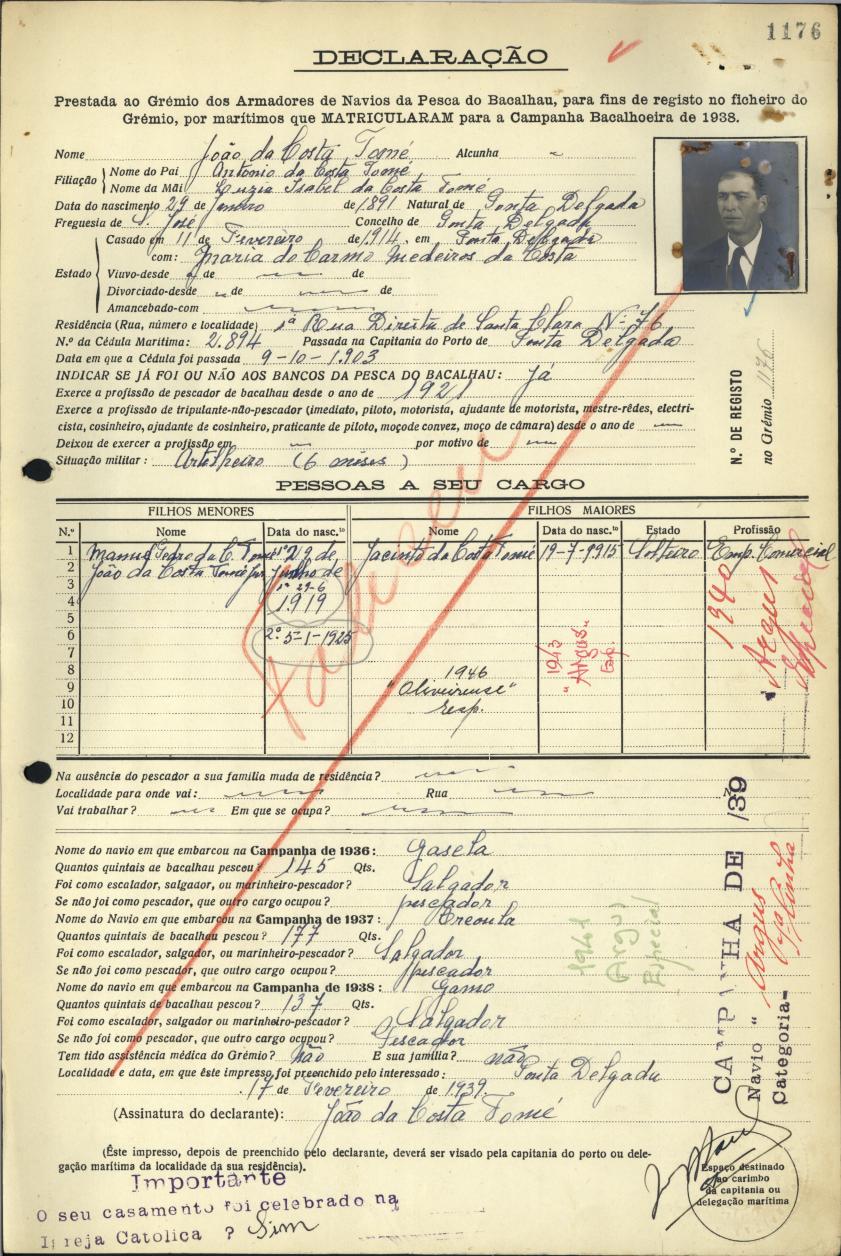 1176
DECLARAÇÃO
Prestada ao Grémio dos Armadores de Navios da Pesca do Bacalhau, para fins de registo no ficheiro do
Grémio, por marítimos que MATRICULARAM para a Campanha Bacalhoeira de 1938.
Nome João da Costa Tomé Alcunha
Filiação Nome do Pai Antonio da Costa Tomé
Nome da Mãi Luzia Isabel da Costa Tomé
Data do nascimento 29 de Janeiro de 1891 Natural de Ponta Delgada
Freguesia de S. José Concelho de Ponta Delgada
Casado em 11 de Fevereiro de 1914, em Ponta Delgada
com: Maria do Carmo Medeiros da Costa
Estado Viuvo-desde de de
Divorciado-desde de de
Amancebado-com
Residência (Rua, número e localidade) 1ª Rua Direita de Santa Clara Nº 76
N.º da Cédula Marítima: 2.894 Passada na Capitania do Porto de Ponta Delgada
Data em que a Cédula foi passada 9-10-1.903
INDICAR SE JÁ FOI OU NÃO AOS BANCOS DA PESCA DO BACALHAU: Já
Exerce a profissão de pescador de bacalhau desde o ano de 1921
Exerce a profissão de tripulante-não-pescador (imediato, piloto, motorista, ajudante de motorista, mestre-rêdes, electri-
cista, cosinheiro, ajudante de cosinheiro, praticante de piloto, moço de convez, moço de câmara) desde o ano de
Deixou de exercer a profissão em por motivo de
Situação militar: Artelheiro (6 mêses)
N.º DE REGISTO
no Grémio 1176
PESSOAS A SEU CARGO
FILHOS MENORES FILHOS MAIORES
N.º Nome Data do nasc.to Nome Data do nasc.to Estado Profissão
1 Manuel Pedro da C. Tomé 1º 29 de Jacinto da Costa Tomé 19-7-1915 Solteiro Emp. Comercial
2 João da Costa Tomé Jor Junho de
3 1º 29-6
4 1.919
5
6 2º 5-1-1925
7
8 1946
9 "Oliveirense"
10 resp.
11
12
Faleceu
1943
"Argus"
Esp.
1940
Argus
Especial
Na ausência do pescador a sua família muda de residência?
Localidade para onde vai: Rua
Vai trabalhar? Em que se ocupa?
Nome do navio em que embarcou na Campanha de 1936: Gasela
Quantos quintais de bacalhau pescou? 145 Qts.
Foi como escalador, salgador, ou marinheiro-pescador? Salgador
Se não foi como pescador, que outro cargo ocupou? pescador
Nome do Navio em que embarcou na Campanha de 1937: Creoula
Quantos quintais de bacalhau pescou? 177 Qts.
Foi como escalador, salgador, ou marinheiro-pescador? Salgador
Se não foi como pescador, que outro cargo ocupou? pescador
Nome do navio em que embarcou na Campanha de 1938: Gamo
Quantos quintais de bacalhau pescou? 137 Qts.
Foi como escalador, salgador ou marinheiro-pescador? Salgador
Se não foi como pescador, que outro cargo ocupou? Pescador
Tem tido assistência médica do Grémio? Não E sua família? não
Localidade e data, em que êste impresso foi preenchido pelo interessado: Ponta Delgada
17 de Fevereiro de 1939
(Assinatura do declarante): João da Costa Tomé
1941
Argus
Especial
CAMPANHA DE /39
Navio " Argus
Categoria- 1ª linha
(Êste impresso, depois de preenchido pelo declarante, deverá ser visado pela capitania do porto ou dele-
gação marítima da localidade da sua residência).
Espaço destinado
ao carimbo
da capitania ou
delegação marítima
Importante
O seu casamento foi celebrado na
Igreja Catolica ? Sim